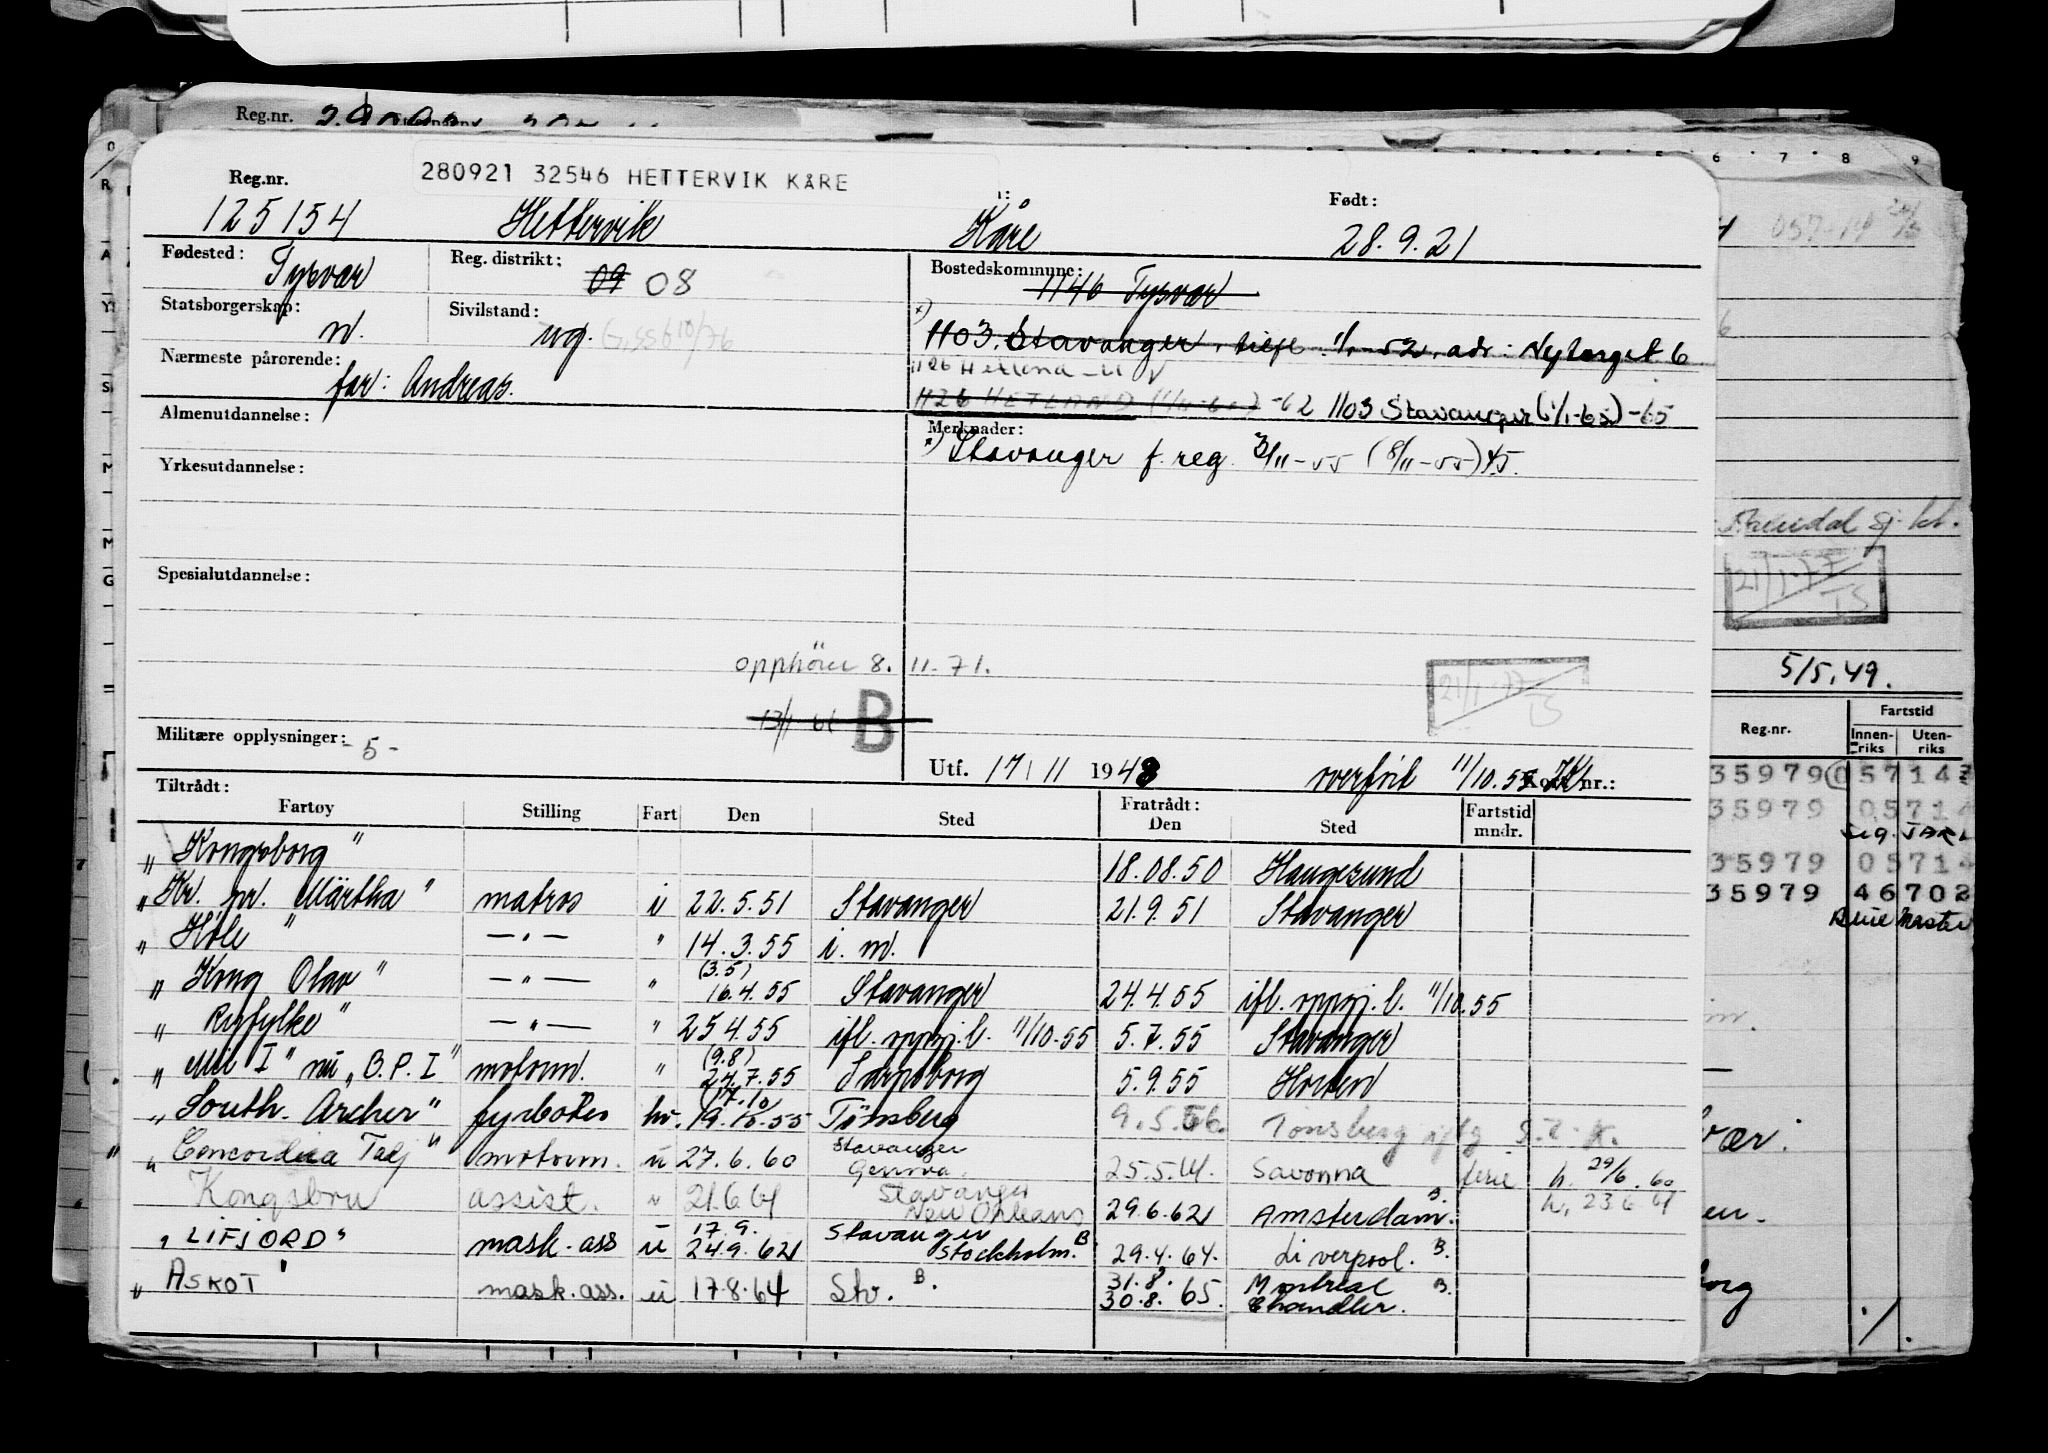 Reg.nr.
Reg.nr. 280921 32546 HETTERVIK KÅRE Født:
125154 Hettervik Kåre 28.9.21
Fødested: Tysvær Reg. distrikt: 09 08 Bostedskommune: 1146 Tysvær
Statsborgerskap: n. Sivilstand: ug.
1103 Stavanger, 1/1-52, adr: Nytorget 6
Nærmeste pårørende: far: Andreas.
1126 HETLAND -62 1103 Stavanger (1/1-62) -65
Almenutdannelse:
Merknader: x) Stavanger f. reg. 3/11-55 (8/11-55)
Yrkesutdannelse:
Spesialutdannelse:
opphörer 8.11.71.
21/1-77
B
Militære opplysninger: -5-
Utf. 17/11 1948 11/10.55 Kort nr.:
Tiltrådt: Fratrådt:
Fartøy Stilling Fart Den Sted Den Sted Fartstid mndr.
„Kongsborg" 18.08.50 Haugesund
„Kr. pr. Märtha" matros i 22.5.51 Stavanger 21.9.51 Stavanger
„Höle" —„— " 14.3.55 i. m.
„Kong Olav" —„— " (3.5) 16.4.55 Stavanger 24.4.55 ifl. oppg. l. 11/10.55
„Ryfylke" —„— " 25 4.55 ifl. oppg. l. 11/10-55 5.7.55 Stavanger
„Mil I" nu „B.P.I" motorm. " (9.8) 24.7.55 Sarpsborg 5.9.55 Horten
„South. Archer" fyrböter hv. (17.10) 19.10.55 Tönsberg 9.5.56. Tönsberg
„Concordia Taj" motorm. u 27.6.60 Stavanger Genova 25.5.61. Savonna ferie h. 29/6.60
assist. 21.6 61 Stavanger New Orleans 29.6.62 Amsterdam. B. h. 23 6 61
„LIFJORD" mask.ass u 17.9. 24.9.62 Stavanger Stockholm. B 29.4.64. Liverpool. B.
„ASKOT" mask.ass. u 17.8.64 Stv. B. 31.8. 30.8.65. Montreal Chandler. B.
6 7 8 9
21/1-77
5/5.49.
Reg.nr. Fartstid
Innenriks Utenriks
35979 05714
35979 05714
35979 05714
35979 46702
Blue Master